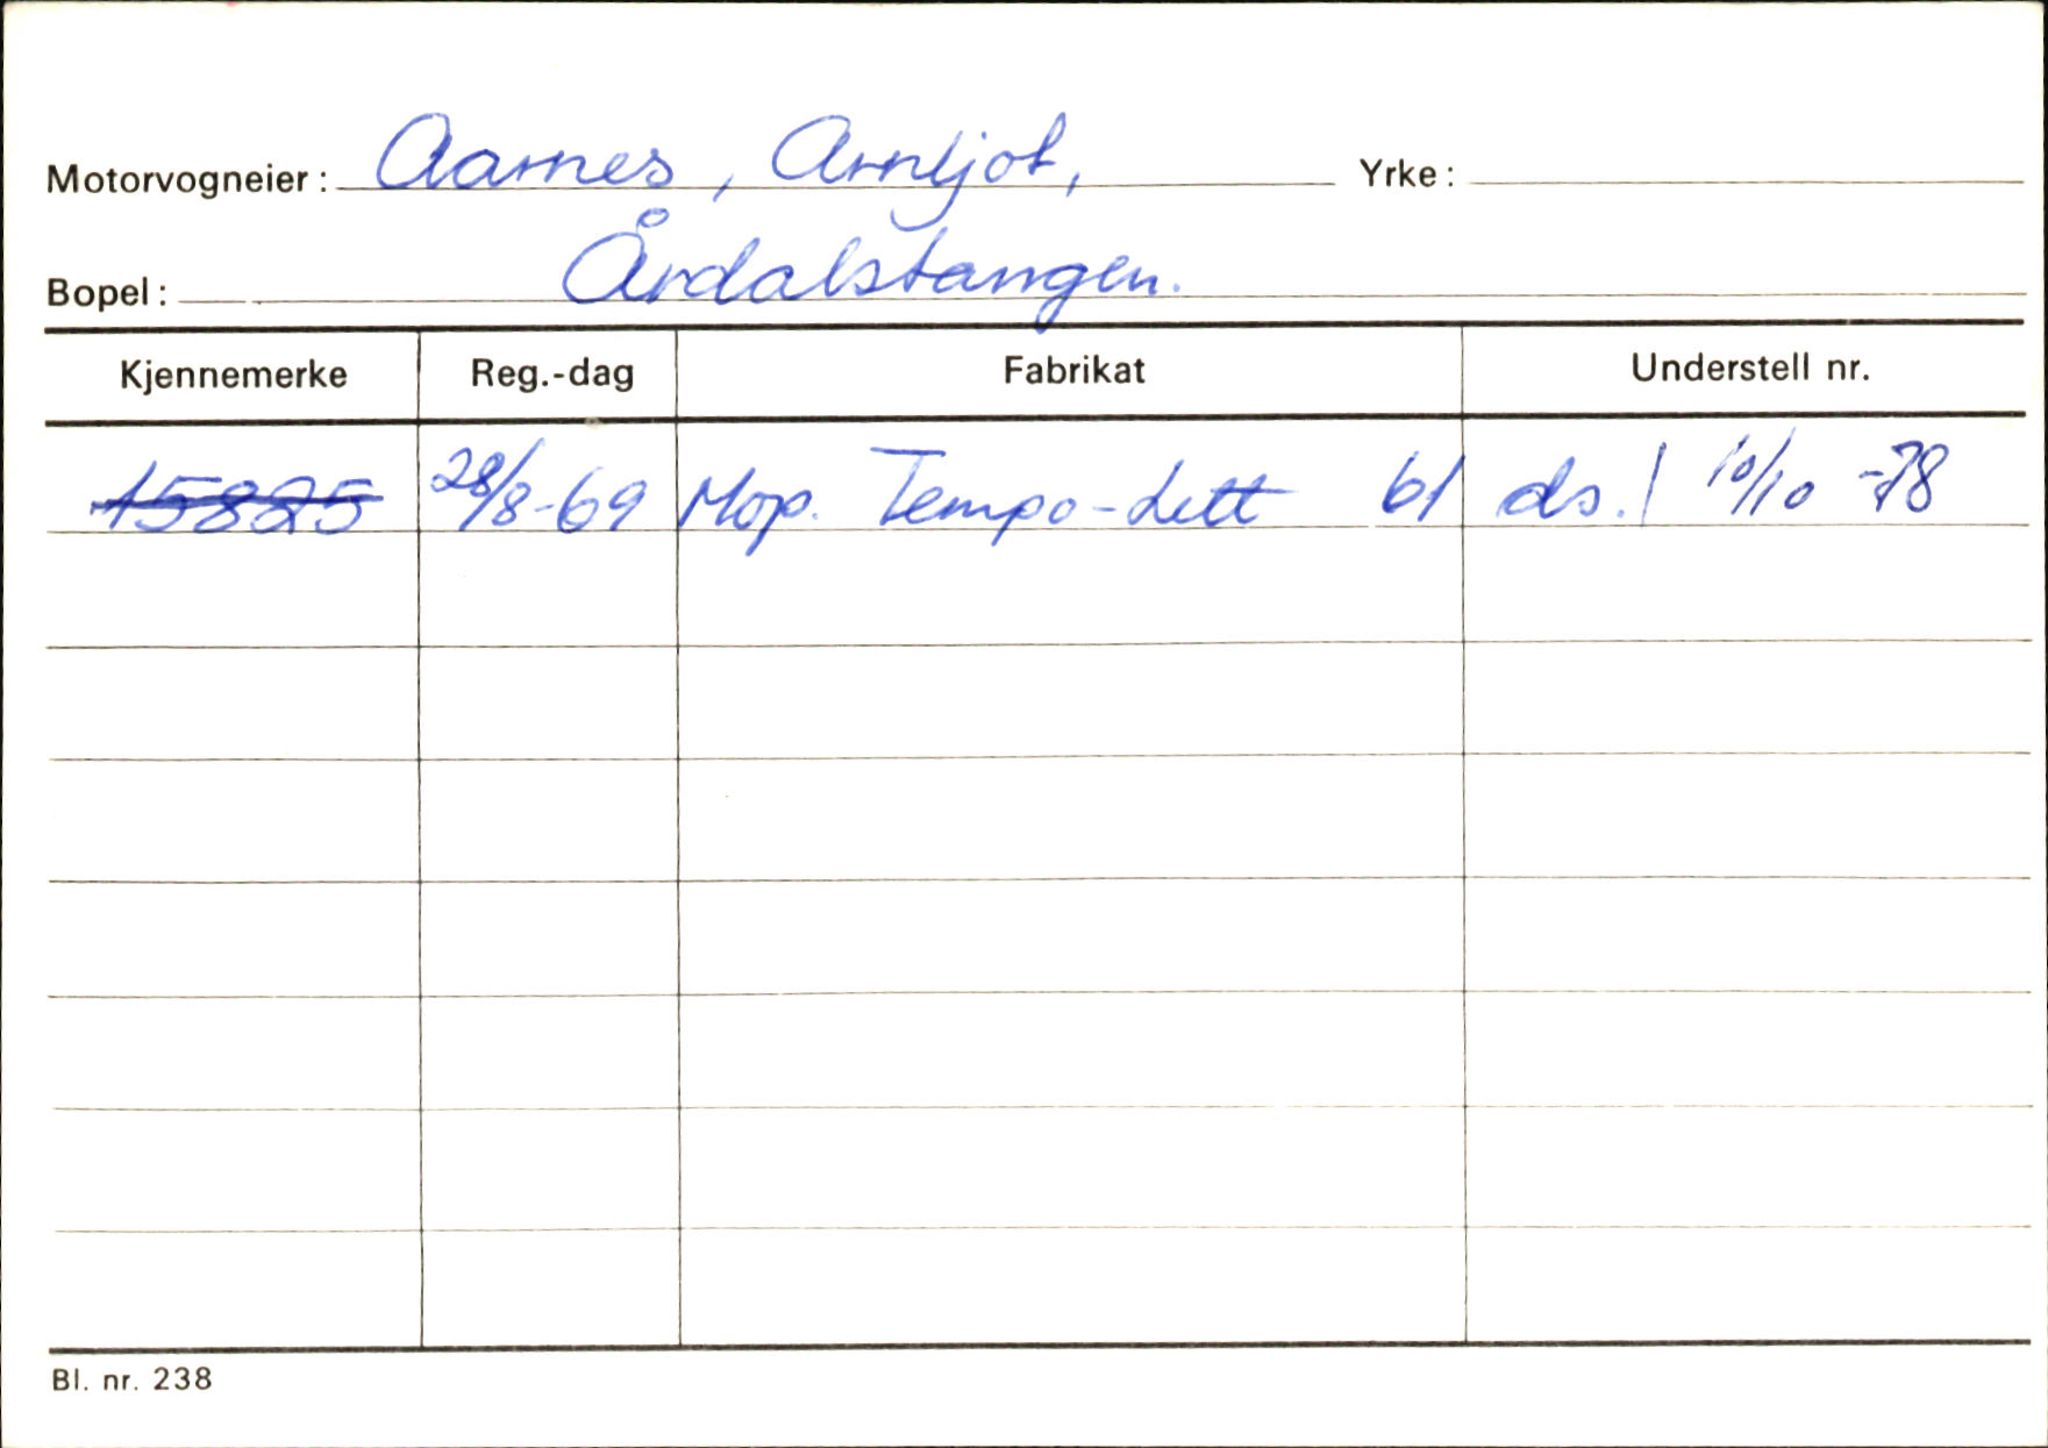 Motorvogneier: Aarnes, Arnljot, Yrke:
Bopel: Årdalstangen.
Kjennemerke Reg.-dag Fabrikat Understell nr.
15825 28/8-69 Mop. Tempo-Lett 61 ds. / 10/10 -78
Bl. nr. 238